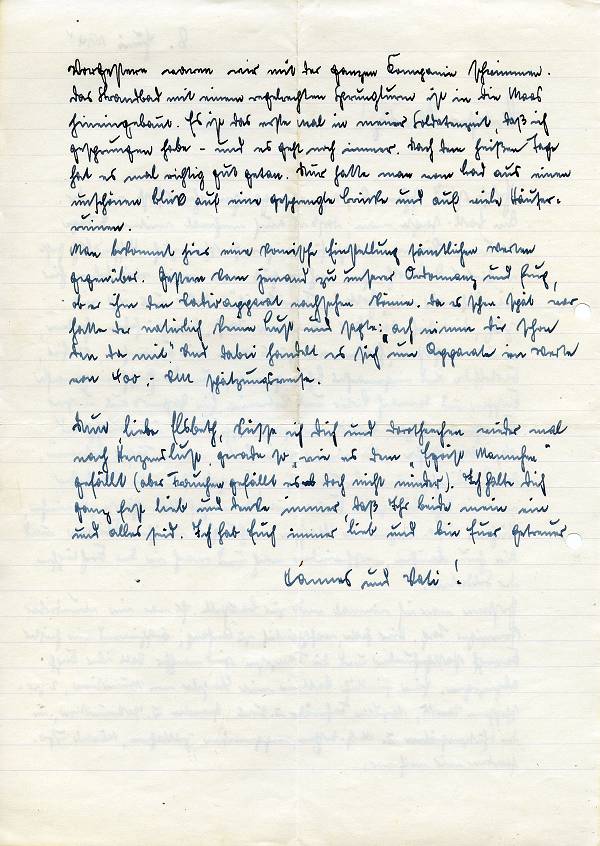 Vorgestern waren wir mit der ganzen Kompanie schwimmen.
Das Strandbad mit einem regelrechten Sprungturm ist in die Maas
hineingebaut. Es ist das erste mal in meiner Soldatenzeit, daß ich
gesprungen habe – und es geht noch immer. Nach den heißen Tage
hat es mal richtig gut getan. Nur hatte man vom bad aus einen
unschönen blick auf eine gesprengte brücke und auf viele Häuser-
ruinen.
Man bekommt hier eine komische Einstellung sämtlichen werten
gegenüber. Gestern kam jemand zu unserer Ordonnanz und frug,
ob er ihm den Radioapparat nachsehen könne. da es schon spät war
hatte der natürlich keine Lust und sagte: "ach nimm dir schon
den da mit" Und dabei handelt es sich um Apparate im werte
von 400,- RM schätzungsweise.
Nun, liebe Elsbeth, küsse ich Dich und dorotheechen wieder mal
nach Herzenslust, gerade so, wie es dem "Männchen"
gefällt (aber Frauchen gefällt es doch nicht minder). Ich halte Dich
ganz fest lieb und denke immer, daß Ihr beide mein ein
und alles seid. Ich hab Euch immer lieb und bin Euer getreuer
Hannes und Vati!